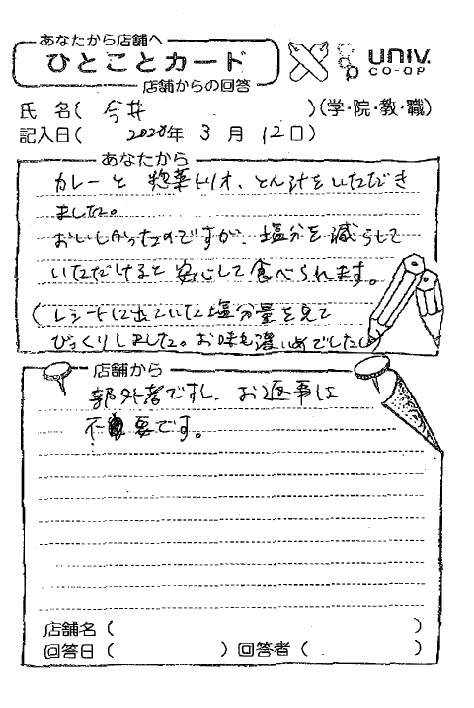 あなたから店舗へ
ひとことカード
店舗からの回答
univ.
CO-OP
氏 名( 今井 )(学・院・教・職)
記入日( 2020年 3 月 12日)
あなたから
カレーと 惣菜トリオ、とん汁をいただき
ました。
おいしかったのですが、塩分を減らして
いただけると安心して食べられます。
(レシートに出ていた塩分量を見て
びっくりしました。お味も濃いめでしたし
店舗から
部外者ですし、お返事は
不要です。
店舗名( )
回答日( )回答者( )